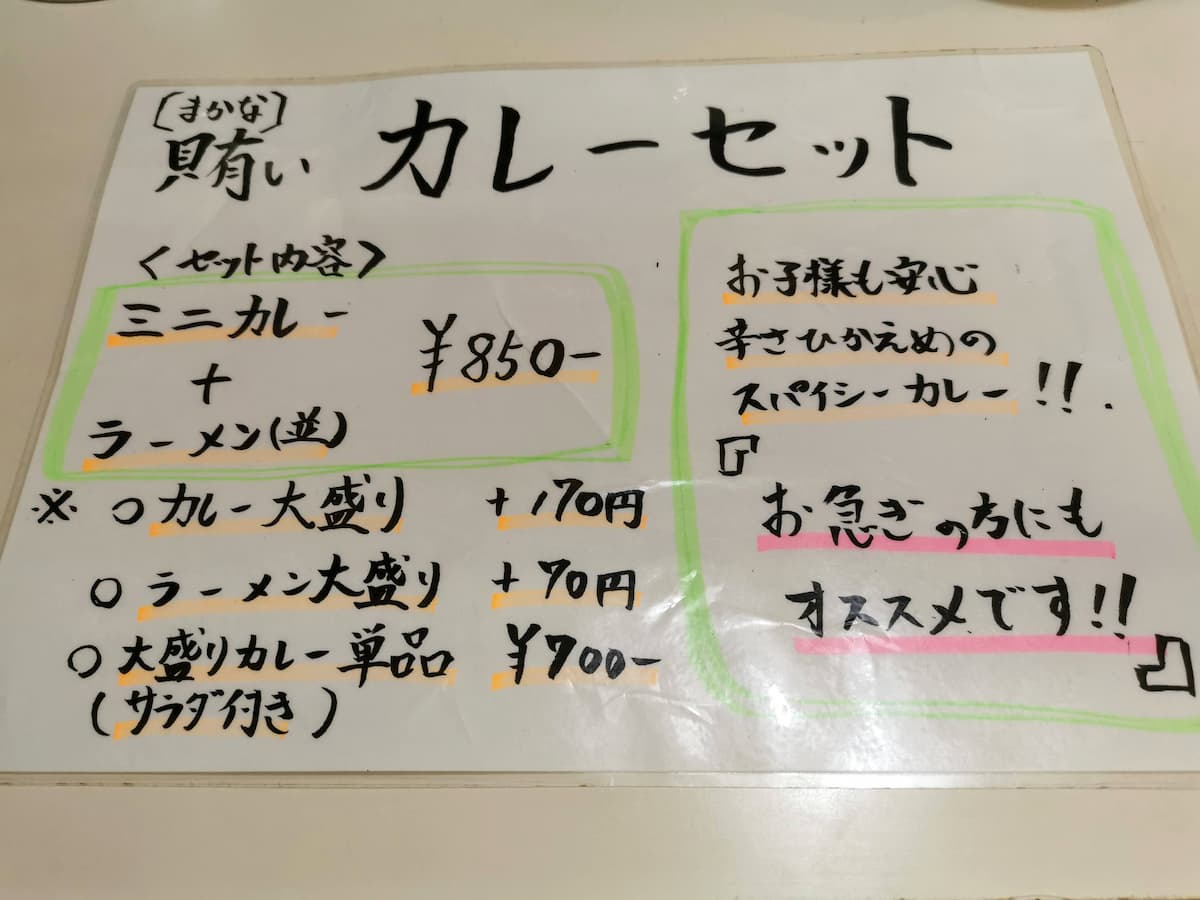 〔まかな〕
賄い カレーセット
〈セット内容〉
ミニカレー
+
ラーメン(並)
¥850-
※ ○カレー大盛り +170円
○ ラーメン大盛り +70円
○ 大盛りカレー単品 ¥700-
(サラダ付き)
お子様も安心
辛さひかえめの
スパイシーカレー!!.
『お急ぎの方にも
オススメです!!』